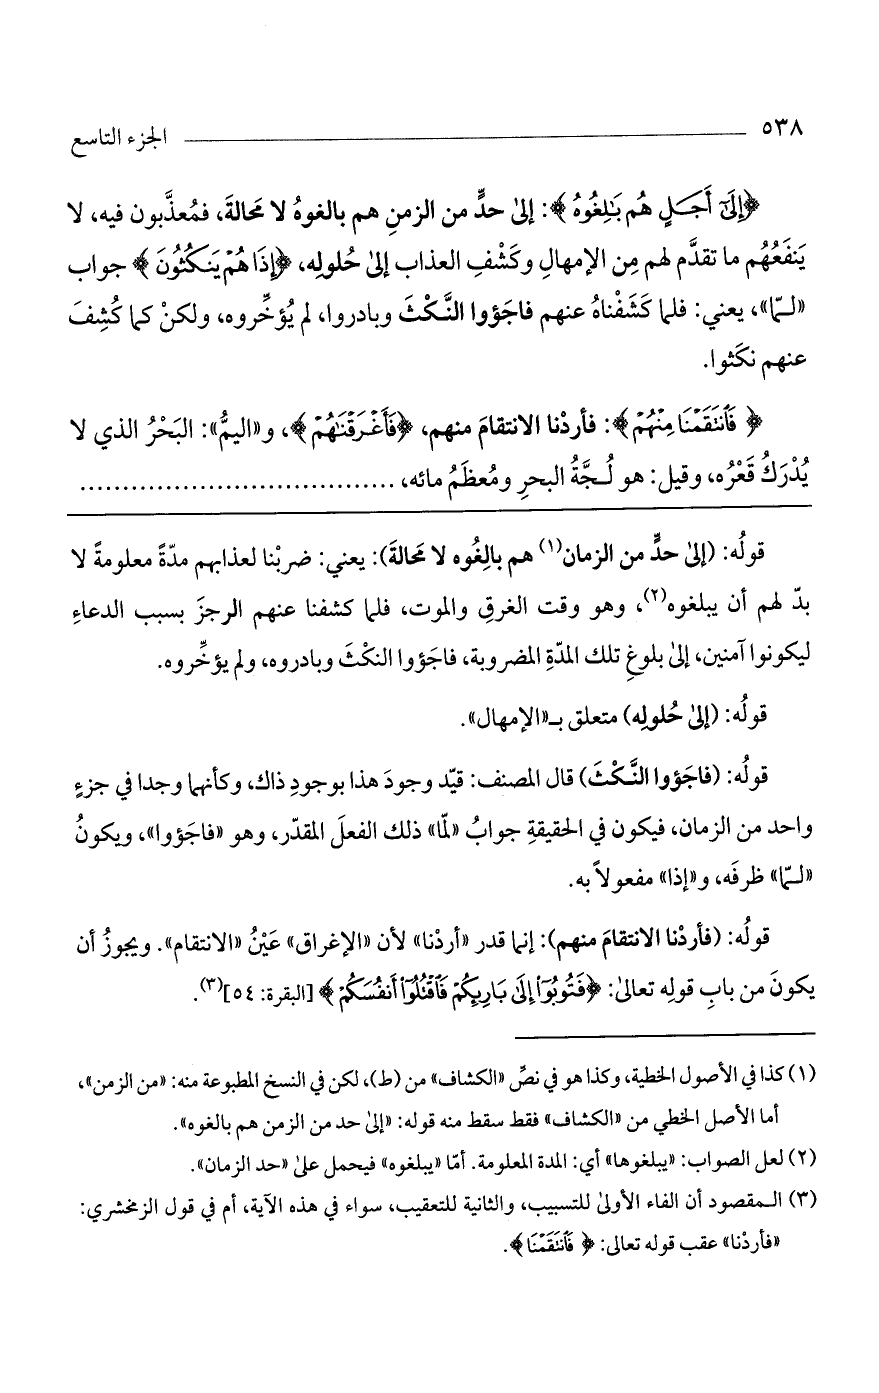 ٥٣٨ الجزء التاسع
﴿إِلَىٰٓ أَجَلٍ هُم بَٰلِغُوهُ﴾: إلىٰ حدٍّ من الزمنِ هم بالغوهُ لا مَحالةَ، فمُعذَّبون فيه، لا
يَنفَعُهُم ما تقدَّم لهم مِن الإمهالِ وكَشْفِ العذاب إلىٰ حُلولِه، ﴿إِذَا هُمْ يَنكُثُونَ﴾ جواب
«لـمّا»، يعني: فلما كَشَفْناهُ عنهم فاجَؤوا النَّكْثَ وبادروا، لم يُؤخِّروه، ولكنْ كما كُشِفَ
عنهم نكَثوا.
﴿فَٱنتَقَمْنَا مِنْهُمْ﴾: فأردْنا الانتقامَ منهم، ﴿فَأَغْرَقْنَٰهُمْ﴾، و«اليمُّ»: البَحْرُ الذي لا
يُدْرَكُ قَعْرُه، وقيل: هو لُـجَّةُ البحرِ ومُعظَمُ مائه، ..................................
قولُه: (إلىٰ حدٍّ من الزمان(١) هم بالِغُوه لا مَحالةَ): يعني: ضربْنا لعذابهم مدّةً معلومةً لا
بدّ لهم أن يبلغوه(٢)، وهو وقت الغرقِ والموت، فلما كشفنا عنهم الرجزَ بسبب الدعاءِ
ليكونوا آمنين، إلىٰ بلوغِ تلك المدّةِ المضروبة، فاجَؤوا النكْثَ وبادروه، ولم يؤخِّروه.
قولُه: (إلىٰ حُلولِه) متعلق بـ«الإمهال».
قولُه: (فاجَؤوا النَّكْثَ) قال المصنف: قيّد وجودَ هذا بوجودِ ذاك، وكأنهما وجدا في جزءٍ
واحد من الزمان، فيكون في الحقيقةِ جوابُ «لمّا» ذلك الفعلَ المقدّر، وهو «فاجَؤوا»، ويكونُ
«لـمّا» ظرفَه، و«إذا» مفعولاً به.
قولُه: (فأردْنا الانتقامَ منهم): إنما قدر «أردْنا» لأن «الإغراق» عَيْنُ «الانتقام». ويجوزُ أن
يكونَ من بابِ قولِه تعالىٰ: ﴿فَتُوبُوٓا۟ إِلَىٰ بَارِئِكُمْ فَٱقْتُلُوٓا۟ أَنفُسَكُمْ﴾ [البقرة: ٥٤](٣).
(١) كذا في الأصول الخطية، وكذا هو في نصِّ «الكشاف» من (ط)، لكن في النسخ المطبوعة منه: «من الزمن»،
أما الأصل الخطي من «الكشاف» فقط سقط منه قوله: «إلىٰ حد من الزمن هم بالغوه».
(٢) لعل الصواب: «يبلغوها» أي: المدة المعلومة. أمّا «يبلغوه» فيحمل علىٰ «حد الزمان».
(٣) الـمقصود أن الفاء الأولىٰ للتسبيب، والثانية للتعقيب، سواء في هذه الآية، أم في قول الزمخشري:
«فأردْنا» عقب قوله تعالى: ﴿فَٱنتَقَمْنَا﴾.